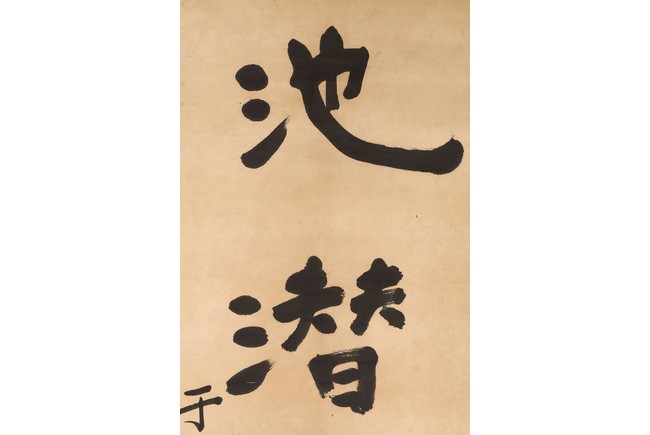 池潜
于